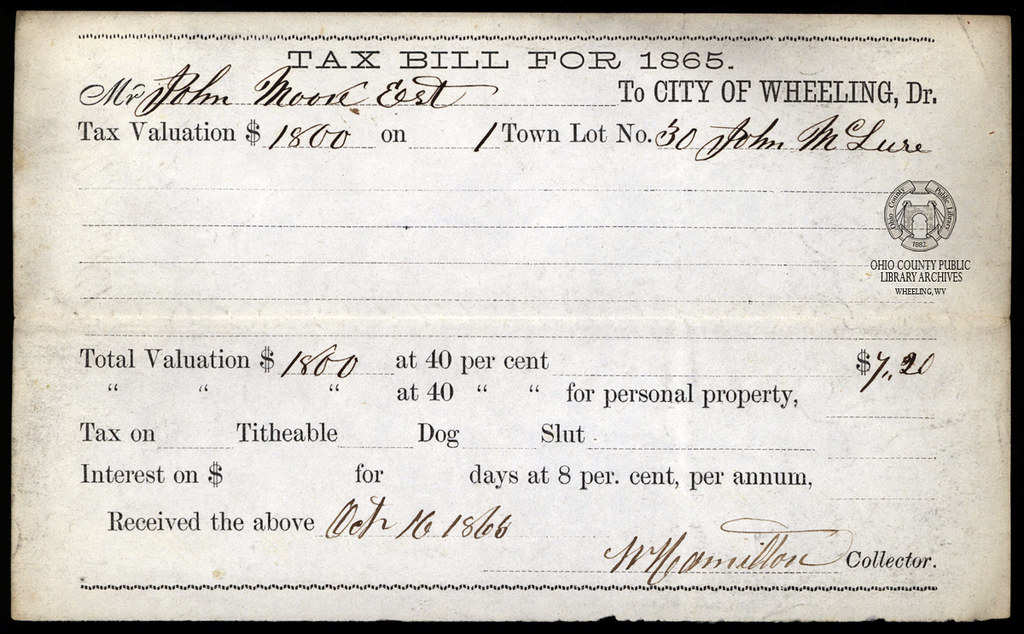 TAX BILL FOR 1865.
Mr John Moore Est To CITY OF WHEELING, Dr.
Tax Valuation $ 1800 on 1 Town Lot No. 30 John McLure
Ohio County Public Library
1882
OHIO COUNTY PUBLIC
LIBRARY ARCHIVES
WHEELING, WV
Total Valuation $ 1800 at 40 per cent $7,,20
“ “ “ at 40 “ “ for personal property,
Tax on Titheable Dog Slut
Interest on $ for days at 8 per. cent, per annum,
Received the above Oct 16 1866
W Hamilton Collector.